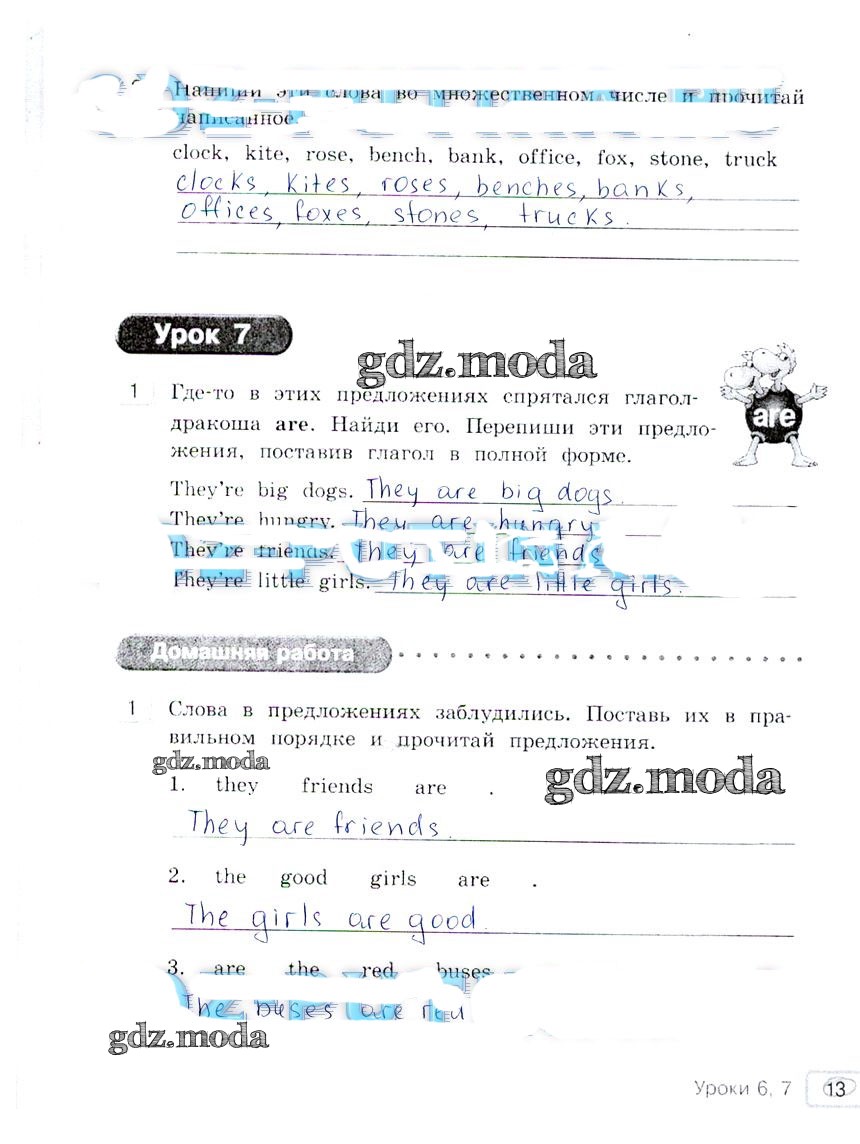 Напиши эти слова во множественном числе и прочитай
написанное.
clock, kite, rose, bench, bank, office, fox, stone, truck
clocks, kites, roses, benches, banks,
offices, foxes, stones, trucks.
Урок 7
gdz.moda
1 Где-то в этих предложениях спрятался глагол-
дракоша are. Найди его. Перепиши эти предло-
жения, поставив глагол в полной форме.
are
They're big dogs. They are big dogs.
They're hungry. They are hungry
They're friends. They are friends
They're little girls. They are little girls.
Домашняя работа
1 Слова в предложениях заблудились. Поставь их в пра-
вильном порядке и прочитай предложения.
gdz.moda
gdz.moda
1. they friends are .
They are friends.
2. the good girls are .
The girls are good.
3. are the red buses
The buses are
gdz.moda
Уроки 6, 7 13